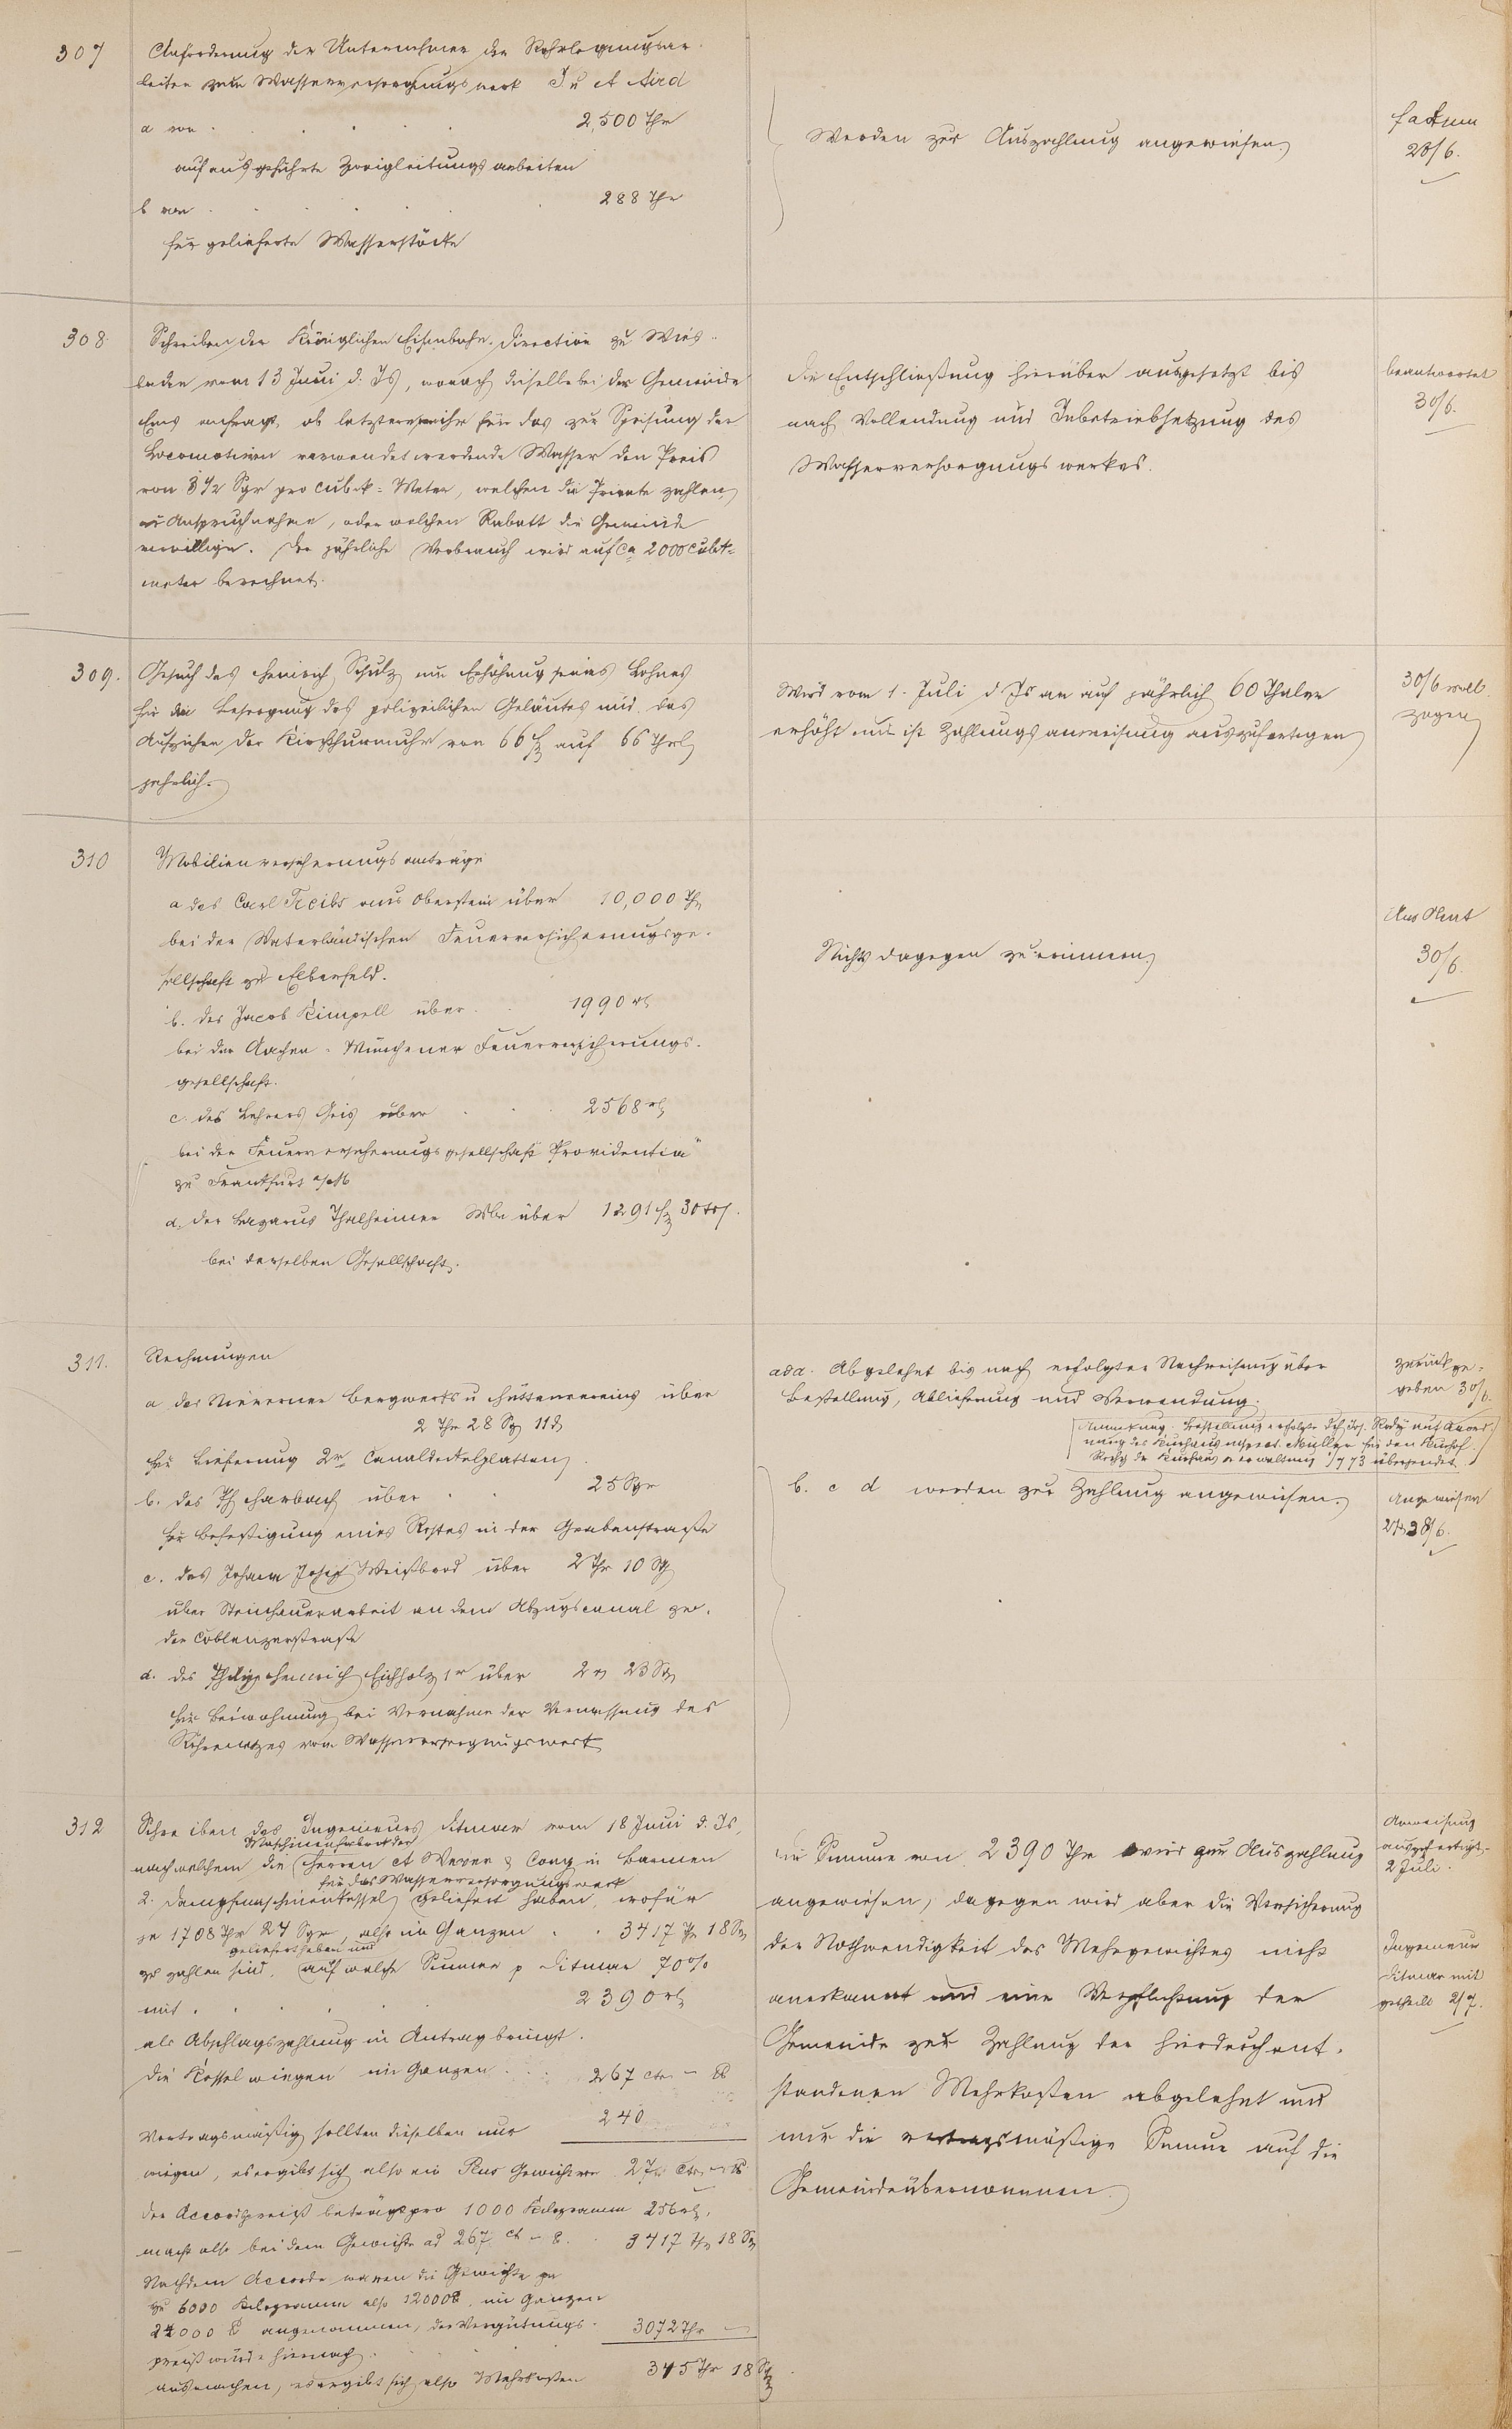 307
Anforderung der Unternehmer der Rohrlegungsar-
beiten zum Wasserversorgungswerk J u A Aird
a von . . . . 2,500 Thr
auf ausgeführte Zweigleitungsarbeiten
b von . . . . . 288 Thr
für gelieferte Wasserstöcke
Werden zur Auszahlung angewiesen.
factum
28/6.
308
Schreiben der Königlichen Eisenbahn-Direction zu Wies-
baden vom 13 Juni d. Js, wonach dieselbe bei der Gemeinde
Ems anfragt, ob letztere von ihr für das zur Speisung der
Locomotiven verwendet werdende Wasser den Preis
von 3 1/2 Sgr pro Cubik-Meter, welchen die Private zahlen,
in Anspruch nehme, oder welchen Rabatt die Gemeinde
verwillige. Der jährliche Verbrauch wird auf ca 2000 Cubik-
meter berechnet.
Die Entschließung hierüber ausgesetzt bis
nach Vollendung und Inbetriebsetzung des
Wasserversorgungswerkes.
beantwortet
30/6.
309.
Gesuch des Heinrich Schulz um Erhöhung seines Lohnes
für die Besorgung des polizeilichen Geläutes und das
Aufziehen der Kirchthurmuhr von 66 f auf 66 Thrl
jährlich.
Wird vom 1. Juli d Js an auf jährlich 60 Thaler
erhöht und ist Zahlungsanweisung auszufertigen
30/6 voll
zogen
310
Mobilienversicherungsanträge
a des Carl Treibs aus Oberstein über 10,000 Th
bei der Vaterländischen Feuerversicherungsge-
sellschaft zu Elberfeld.
b. des Jacob Kimpell über . . 1990 rl
bei der Aachen-Münchener Feuerversicherungs-
gesellschaft.
c. des Lehrers Geis über . . . 2568 rl
bei der Feuerversicherungsgesellschaft Providentia"
zu Frankfurt a/M
d. der Lazarus Thalheimer Wbe über 1291 f 30 kr.
bei derselben Gesellschaft.
Nichts dagegen zu erinnern.
30/6.
311.
Rechnungen
a des Nieverner Bergwerks u Hüttenvereins über
2 Thr 28 Sg 11 d
für Lieferung 2r Canaldeckelplatten
b. des Ph Harbach über . . 25 Sgr
für Befestigung eines Rostes in der Grabenstraße
c. des Johann Josef Weißbrod über 2 Thr 10 Sg
über Steinhauerarbeit an dem Abzugscanal zu.
der Coblenzerstraße
d. des Philipp Heinrich Eichholz 1r über 2 rl 23 Sg
für Beiwohnung bei Vornahme der Vermessung des
Rohrnetzes vom Wasserversorgungswerk
ad a. Abgelehnt bis nach erfolgter Nachweisung über
Bestellung, Ablieferung und Verwendung.
Anmerkung. Bestellung erfolgte dch Jos. auf Anord-
nung des Kurhaus Müller für den Kurhof.
Rechg der Kurhausverwaltung 1/7 73 übersendet.
b. c d werden zur Zahlung angewiesen.
zurückge-
geben 30/6.
Angewiesen
28/6.
312
Schreiben des Ingenieurs Ditmar vom 18 Juni d. Js,
Maschinenfabrik der
nach welchem die Herren A Wever & Comp in Barmen
für das Wasserversorgungswerk
2. Dampfmaschinenkessel geliefert haben, wofür
je 1708 Thr 24 Sgr, also im Ganzen . . 3417 Th 18 Sg
geliefert haben und
zu zahlen sind, auf welche Summe p Ditmar 70%
mit . . . . . 2390 rl
als Abschlagszahlung in Antrag bringt.
Die Kessel wiegen im Ganzen . . . 267 Ctr - ℔
Vertragsmäßig sollten dieselben nur 240
wiegen, es ergibt sich also ein Plus Gewicht von 27 Ctr - ℔
Der Accordpreiß beträgt pro 1000 Kilogramm 256 rl.
macht also bei dem Gewichte ad 267 Ct - ℔. . 3417 Th 18 Sg
Nach dem Accorde waren die Gewichte zu
zu 6000 Kilogramm also 12000 ℔, im Ganzen
24000 ℔ angenommen, der Vergütungs-
preiß würde hiernach . 3072 Thr -
ausmachen, es ergibt sich also Mehrkosten 345 Thr 18 Sg
Die Summe von 2390 Thr wird zur Auszahlung
angewiesen, dagegen wird aber die Versicherung
der Nothwendigkeit des Mehrgewichtes nicht
anerkannt und eine Verpflichtung der
Gemeinde zur Zahlung der hierdurch ent-
standenen Mehrkosten abgelehnt und
nur die vertragsmäßige Summe auf die
Gemeinde übernommen.
Anweisung
ausgefertigt.
2 Juli.
Ingenieur
Ditmar mit
getheilt 2/7.